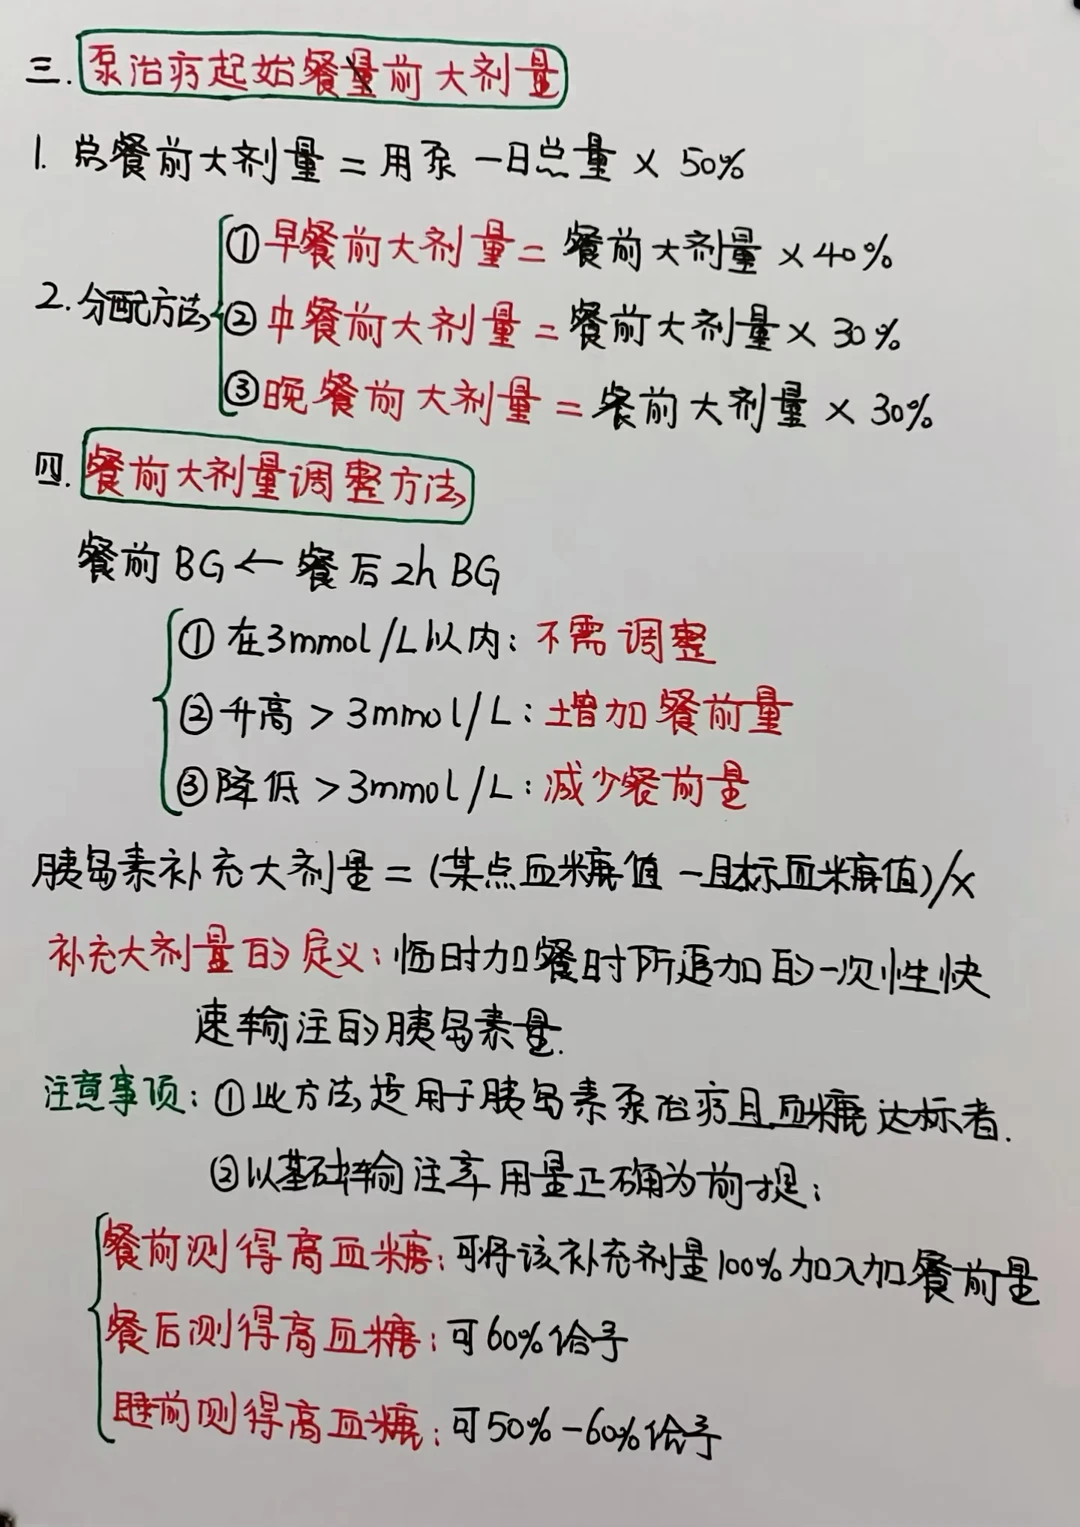 三. 泵治疗起始餐前大剂量
1. 总餐前大剂量 = 用泵一日总量 × 50%
2. 分配方法
① 早餐前大剂量 = 餐前大剂量 × 40%
② 中餐前大剂量 = 餐前大剂量 × 30%
③ 晚餐前大剂量 = 餐前大剂量 × 30%
四. 餐前大剂量调整方法
餐前BG ← 餐后2h BG
① 在3mmol/L以内: 不需调整
② 升高 > 3mmol/L: 增加餐前量
③ 降低 > 3mmol/L: 减少餐前量
胰岛素补充大剂量 = (某点血糖值 - 目标血糖值)/x
补充大剂量的定义: 临时加餐时所追加的一次性快
速输注的胰岛素量.
注意事项: ① 此方法适用于胰岛素泵治疗且血糖达标者.
② 以基础输注率用量正确为前提:
餐前测得高血糖: 可将该补充剂量100%加入加餐前量
餐后测得高血糖: 可60%给予
睡前测得高血糖: 可50%-60%给予